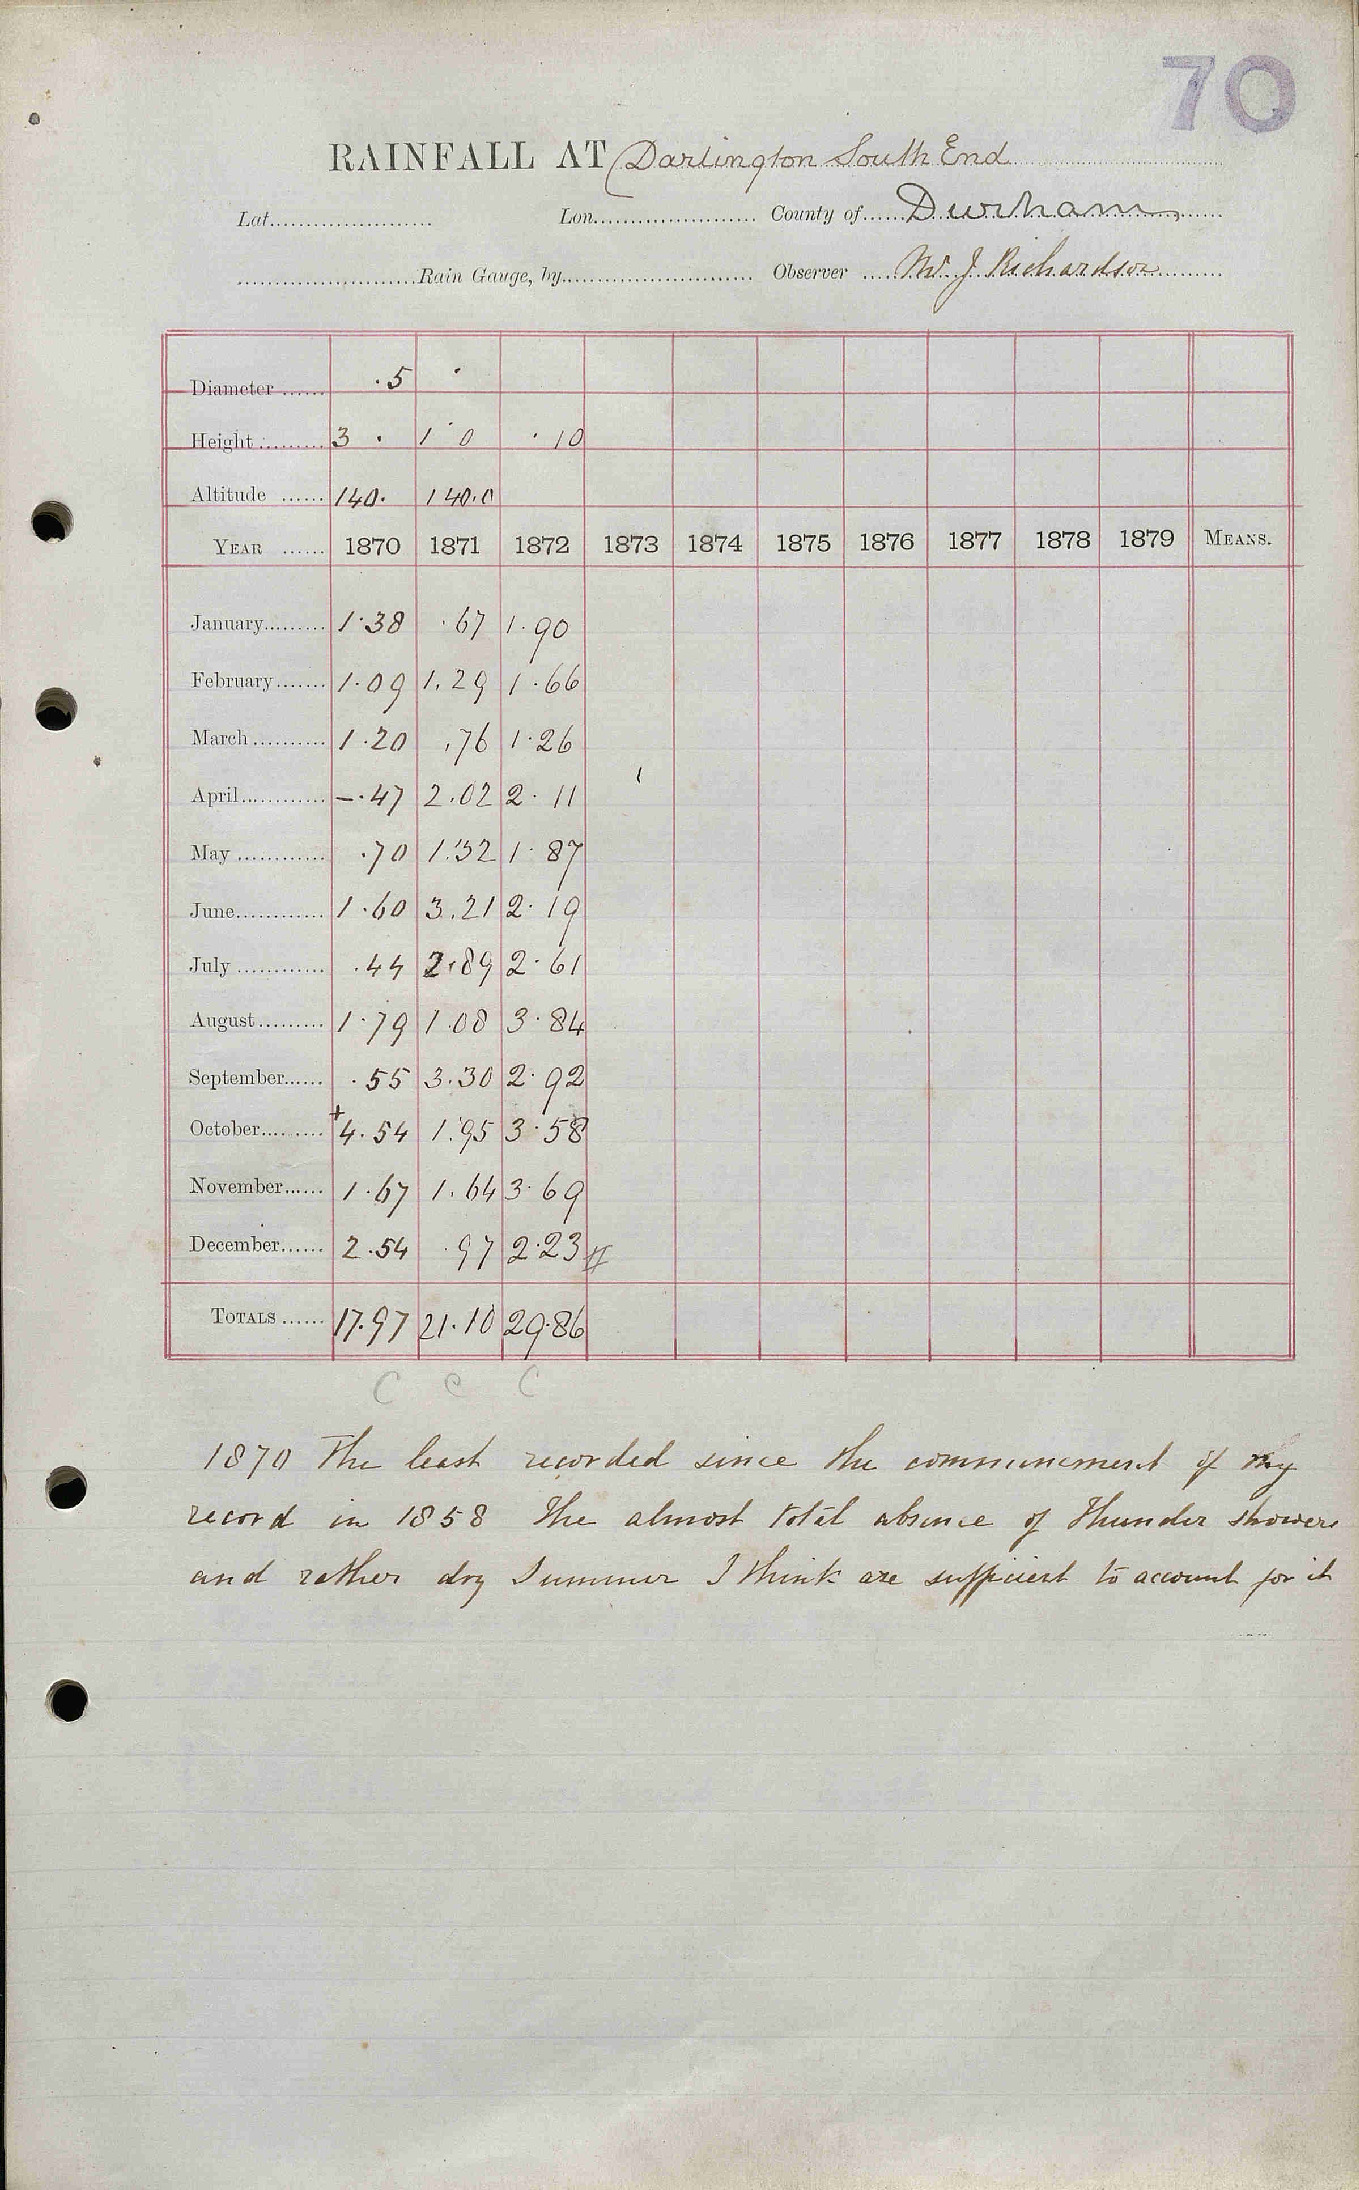 70
RAINFALL AT Darlington South End
Lat...................... Lon...................... County of...... Durham
.........................Rain Gauge, by.......................... Observer .... Mr. J Richardson
Diameter ...... .5
Height ......... 3 . 1 0 . 10
Altitude ...... 140. 140.0
YEAR ...... 1870 1871 1872 1873 1874 1875 1876 1877 1878 1879 MEANS.
January......... 1.38 .67 1.90
February....... 1.09 1.29 1.66
March .......... 1.20 .76 1.26
April............ —.47 2.02 2.11
May ............ .70 1.32 1.87
June............ 1.60 3.21 2.19
July ............ .44 2.89 2.61
August......... 1.79 1.08 3.84
September...... .55 3.30 2.92
October......... +4.54 1.95 3.58
November...... 1.67 1.64 3.69
December...... 2.54 .97 2.23
TOTALS ...... 17.97 21.10 29.86
C C C
1870 The least recorded since the commencement of my
record in 1858 The almost total absence of Thunder showers
and rather dry Summer I think are sufficient to account for it